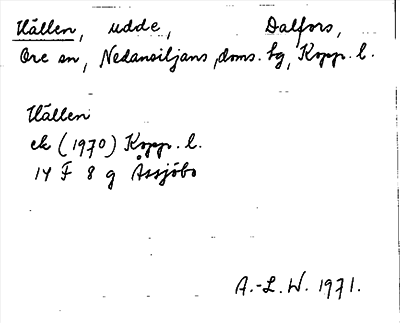 Hällen, udde, Dalfors,
Ore sn, Nedansiljans doms. hg, Kopp. l.
Hällen
ek (1970) Kopp. l.
14 F 8 g Åssjöbo
A.-L. W. 1971.